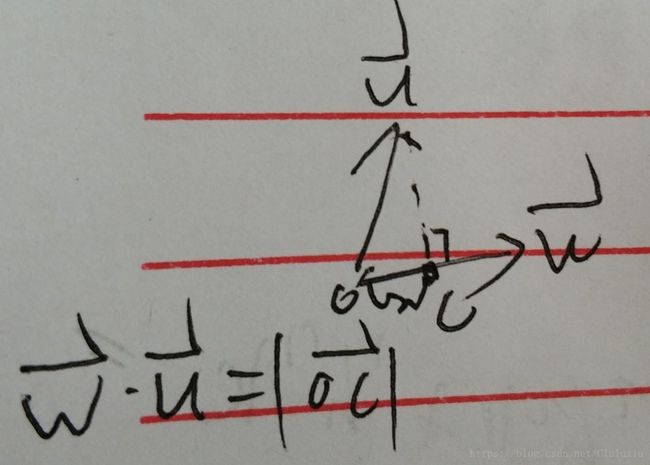 u⃗
w⃗
O C
w⃗·u⃗=|OC⃗|
https://blog.csdn.net/Cluluxiu